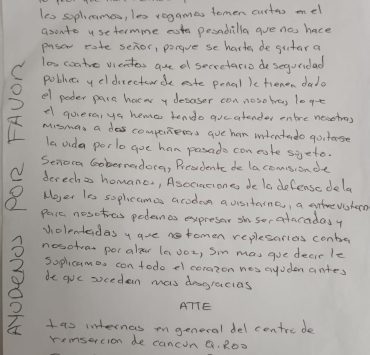 les suplicamos, les rogamos tomen cartas en el
asunto y se termine esta pesadilla que nos hace
pasar este señor, porque se harta de gritar a
los cuatro vientos que el secretario de seguridad
publica y el director de este penal le tienen dado
el poder para hacer y desaser con nosotras lo que
el quiera, ya hemos tenido que atender entre nosotras
mismas a dos compañeras que han intentado quitarse
la vida por lo que han pasado con este sujeto.
Señora Gobernadora, Presidente de la comision de
derechos humanos, Asociaciones de la defensa de la
Mujer les suplicamos acudan a visitarnos, a entrevistarnos
para nosotras podernos expresar sin ser atacadas y
violentadas y que no tomen represarias contra
nosotras por alzar la voz, Sin mas que decir le
Suplicamos con todo el corazon nos ayuden antes
de que sucedan mas desgracias
ATTE
Las internas en general del centro de
reinsercion de cancun Q. Roo
AYUDENOS POR FAVOR